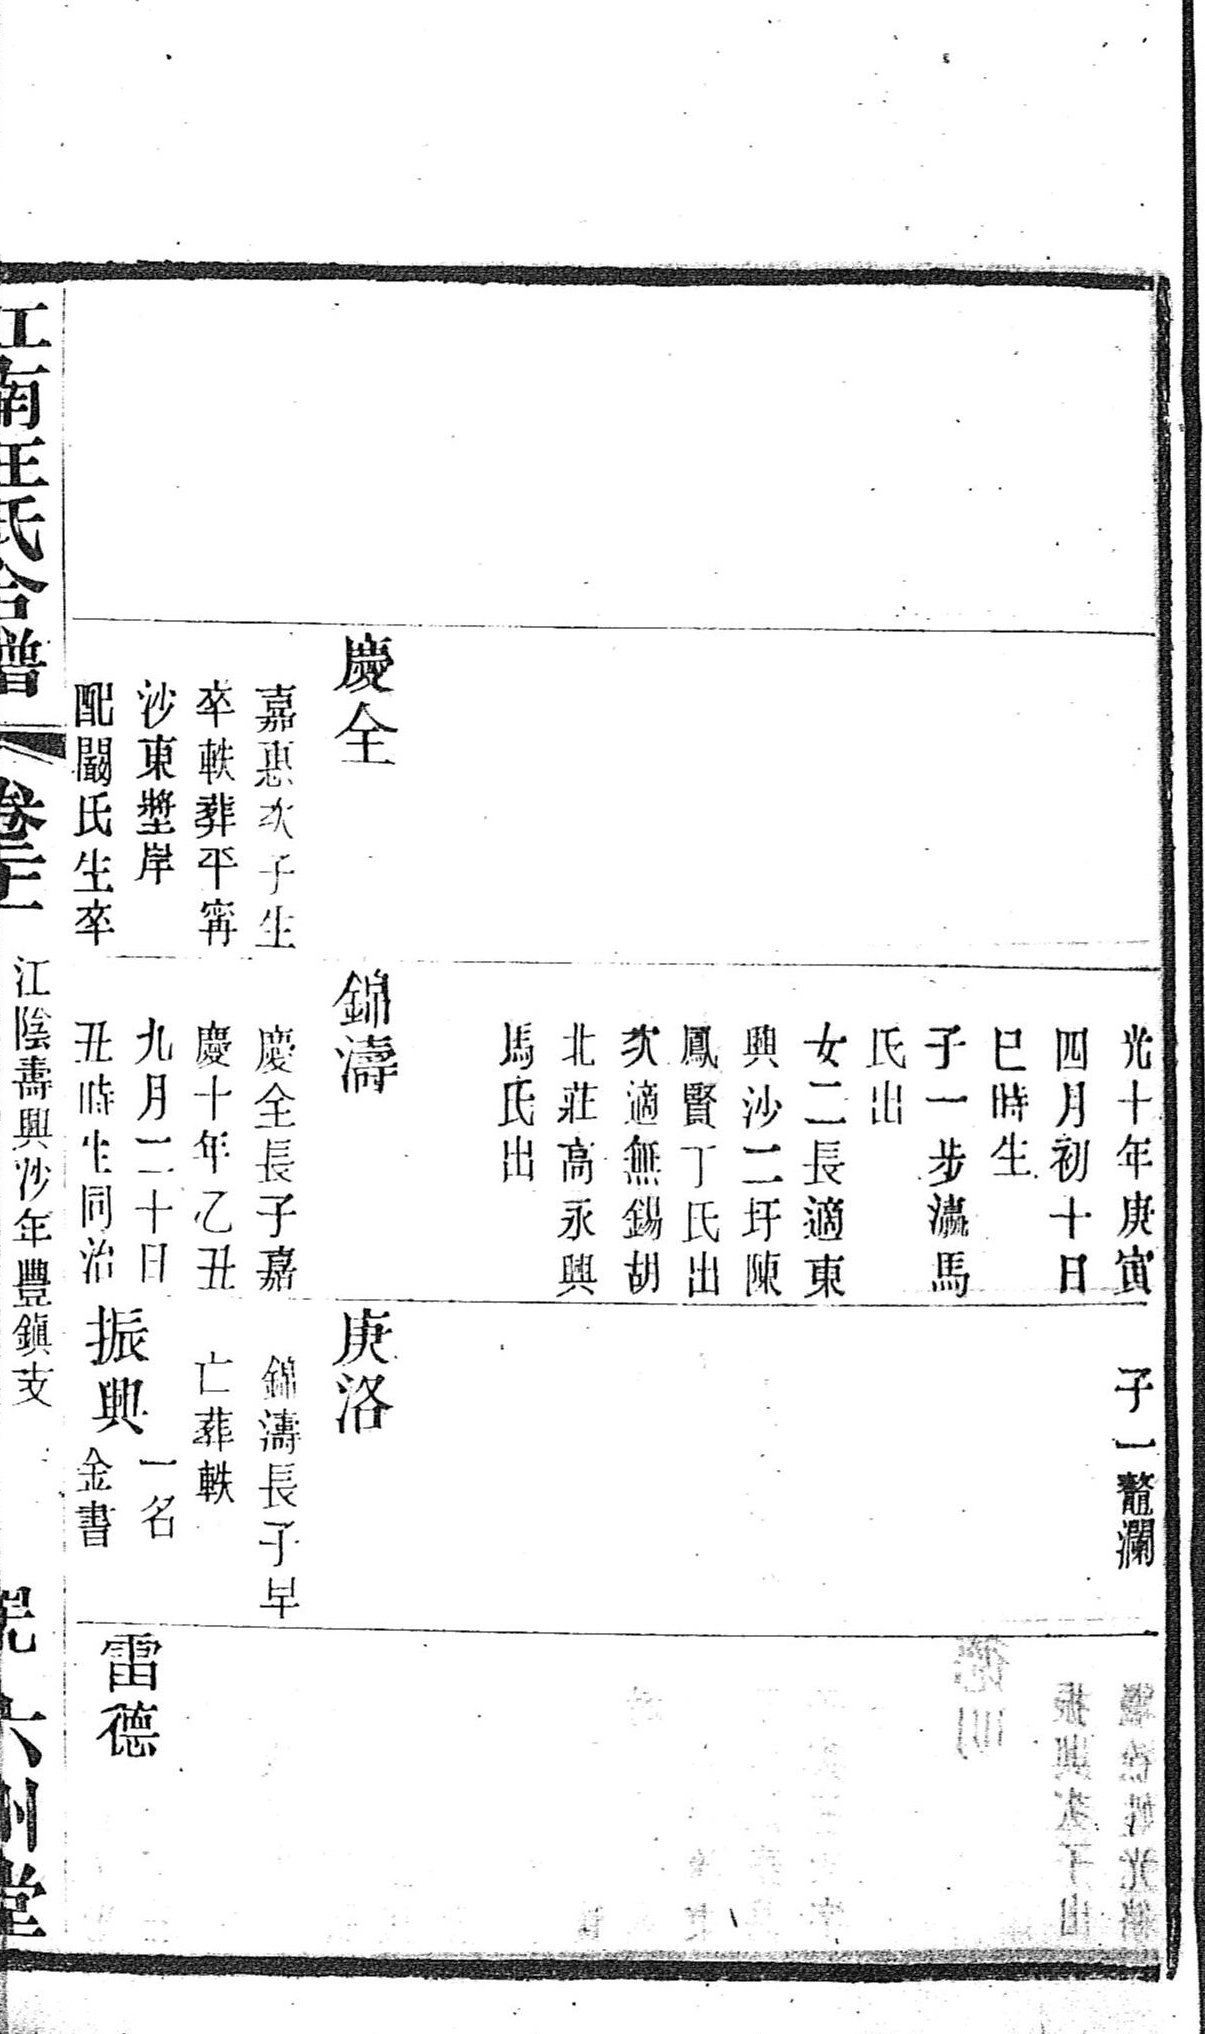 慶全
嘉惠次子生
卒軼葬平甯
沙東壂岸
配闞氏生卒
光十年庚寅
四月初十日
巳時生
子一步瀛馬
氏出
女二長適東
興沙二圩陳
鳳賢丁氏出
次適無錫胡
北莊高永興
馬氏出
錦濤
慶全長子嘉
慶十年乙丑
九月二十日
丑時生同治
子一鼇瀾
庚洛
錦濤長子早
亡葬軼
振興
一名
金書
雷德
江南汪氏合譜
江陰壽興沙年豐鎮支
六州堂